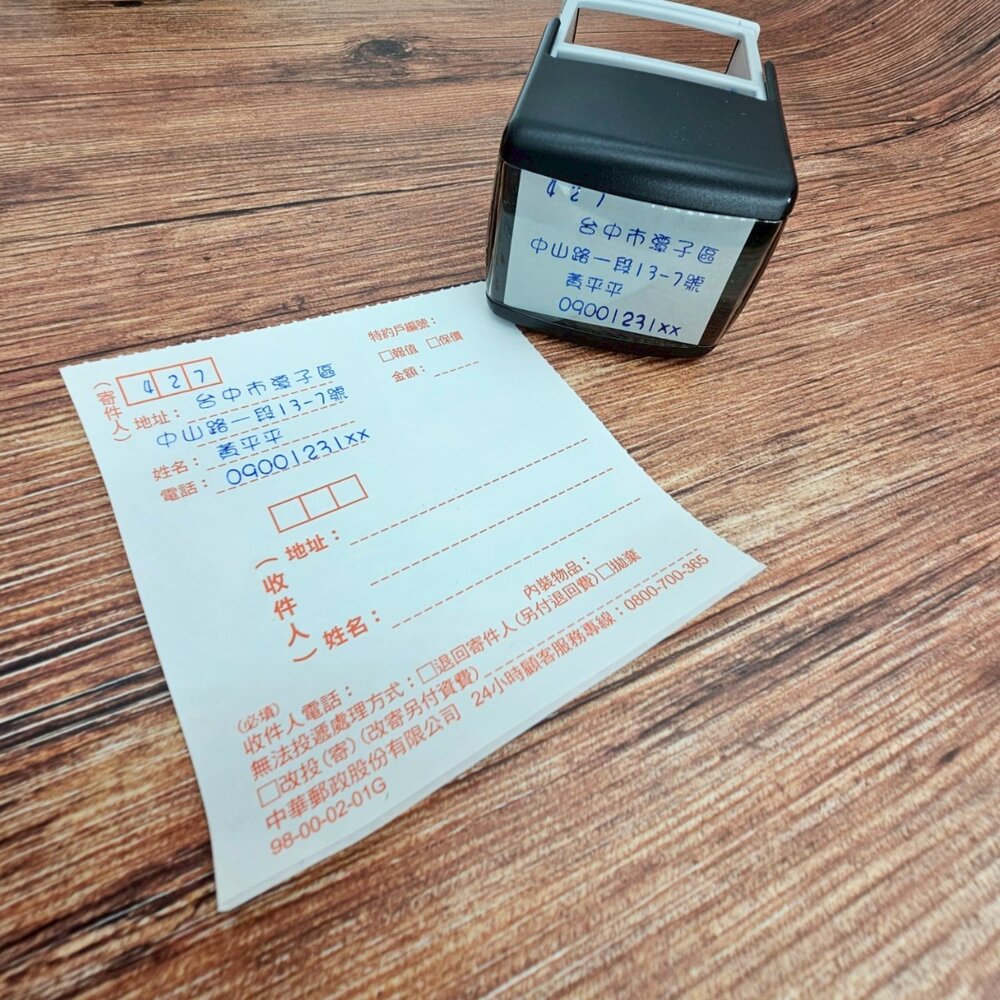 427
台中市潭子區
中山路一段13-7號
黃平平
09001231xx
特約戶編號：
□報值 □保價
金額：
(寄件人)
427
地址：台中市潭子區
中山路一段13-7號
姓名：黃平平
電話：09001231xx
(收件人)
地址：
姓名：
內裝物品：
(必填)
收件人電話：
無法投遞處理方式：□退回寄件人(另付退回費)□拋棄
□改投(寄)(改寄另付資費)
中華郵政股份有限公司 24小時顧客服務專線：0800-700-365
98-00-02-01G